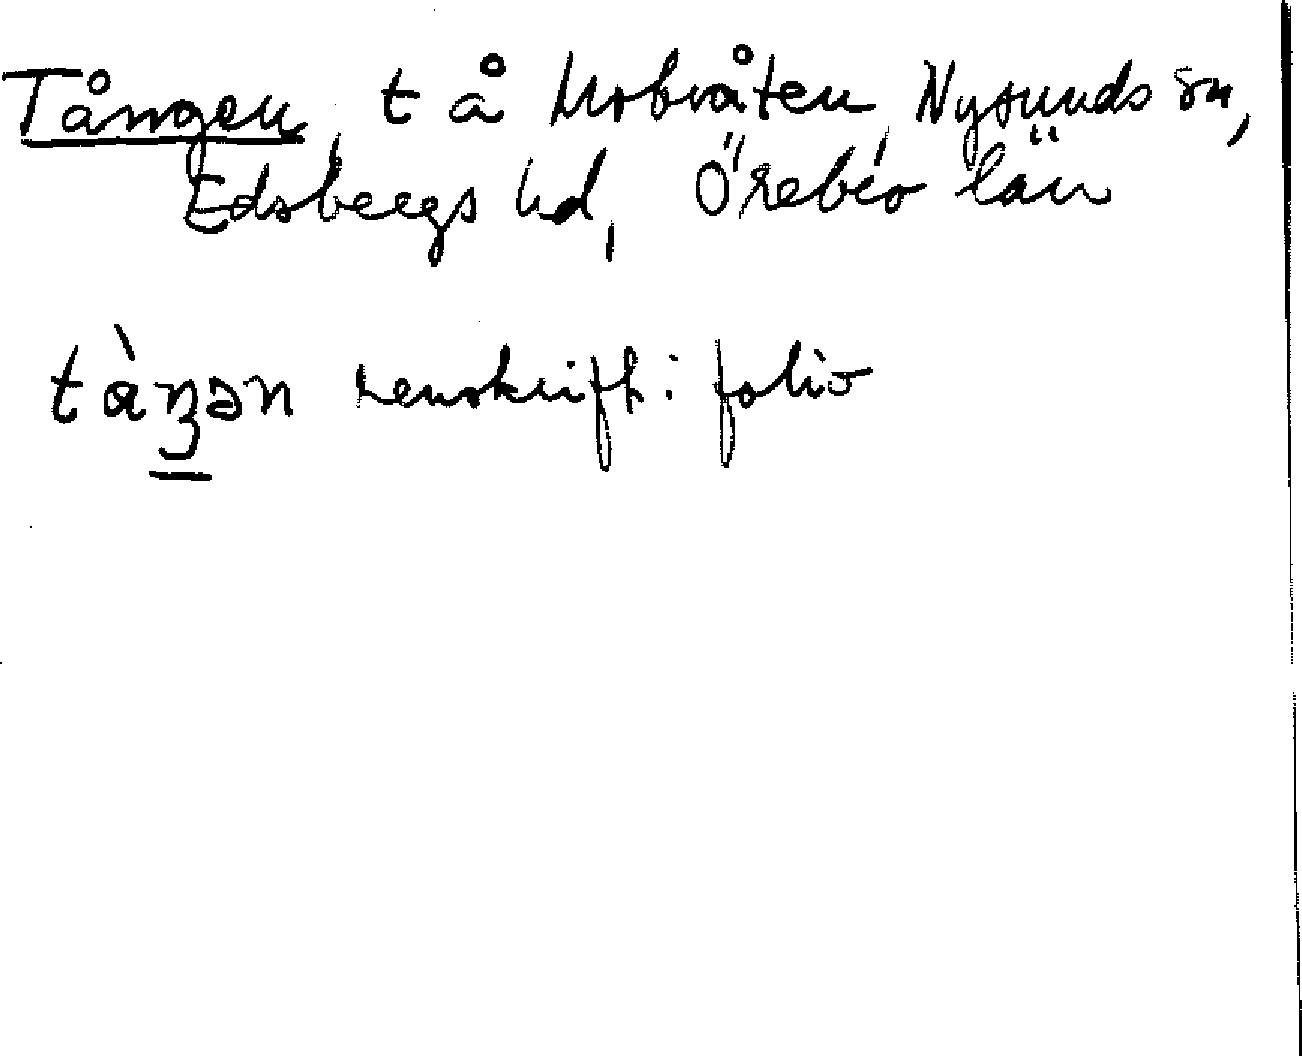 Tången, t å Mobråten, Nysunds sn,
Edsbergs hd, Örebro län
tàŋən renskrift: folio